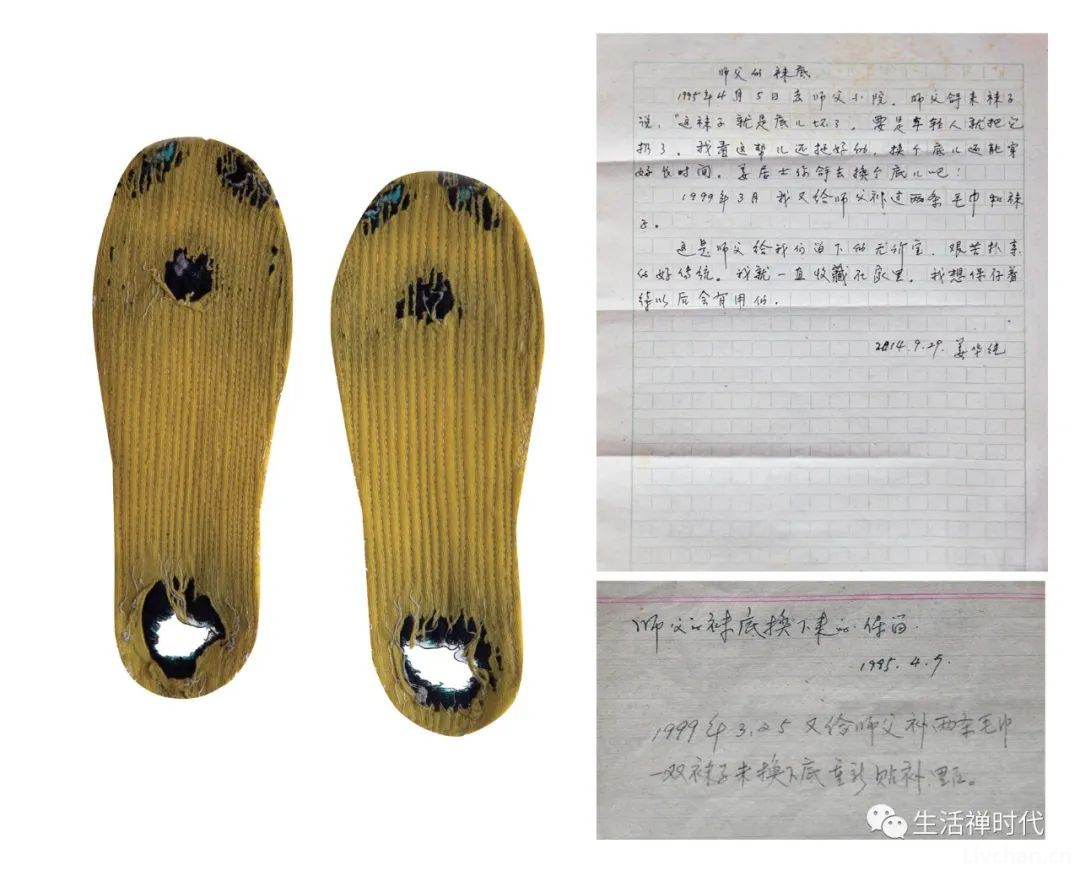 师父的袜底
1995年4月5日去师父小院。师父拿来袜子
说，“这袜子就是底儿坏了。要是年轻人就把它
扔了。我看这帮儿还挺好的，换个底儿还能穿
好长时间。姜居士你拿去换个底儿吧！
1999年3月我又给师父补过两条毛巾和袜
子。
这是师父给我们留下的无价宝，艰苦朴素
的好传统。我就一直收藏在家里。我想保存着
待以后会有用的。
2014.9.29. 姜华纯
师父的袜底换下来的保留.
1995.4.5.
1999年3.25又给师父补两条毛巾
一双袜子未换下底重新贴补
生活禅时代
Livchan.cn